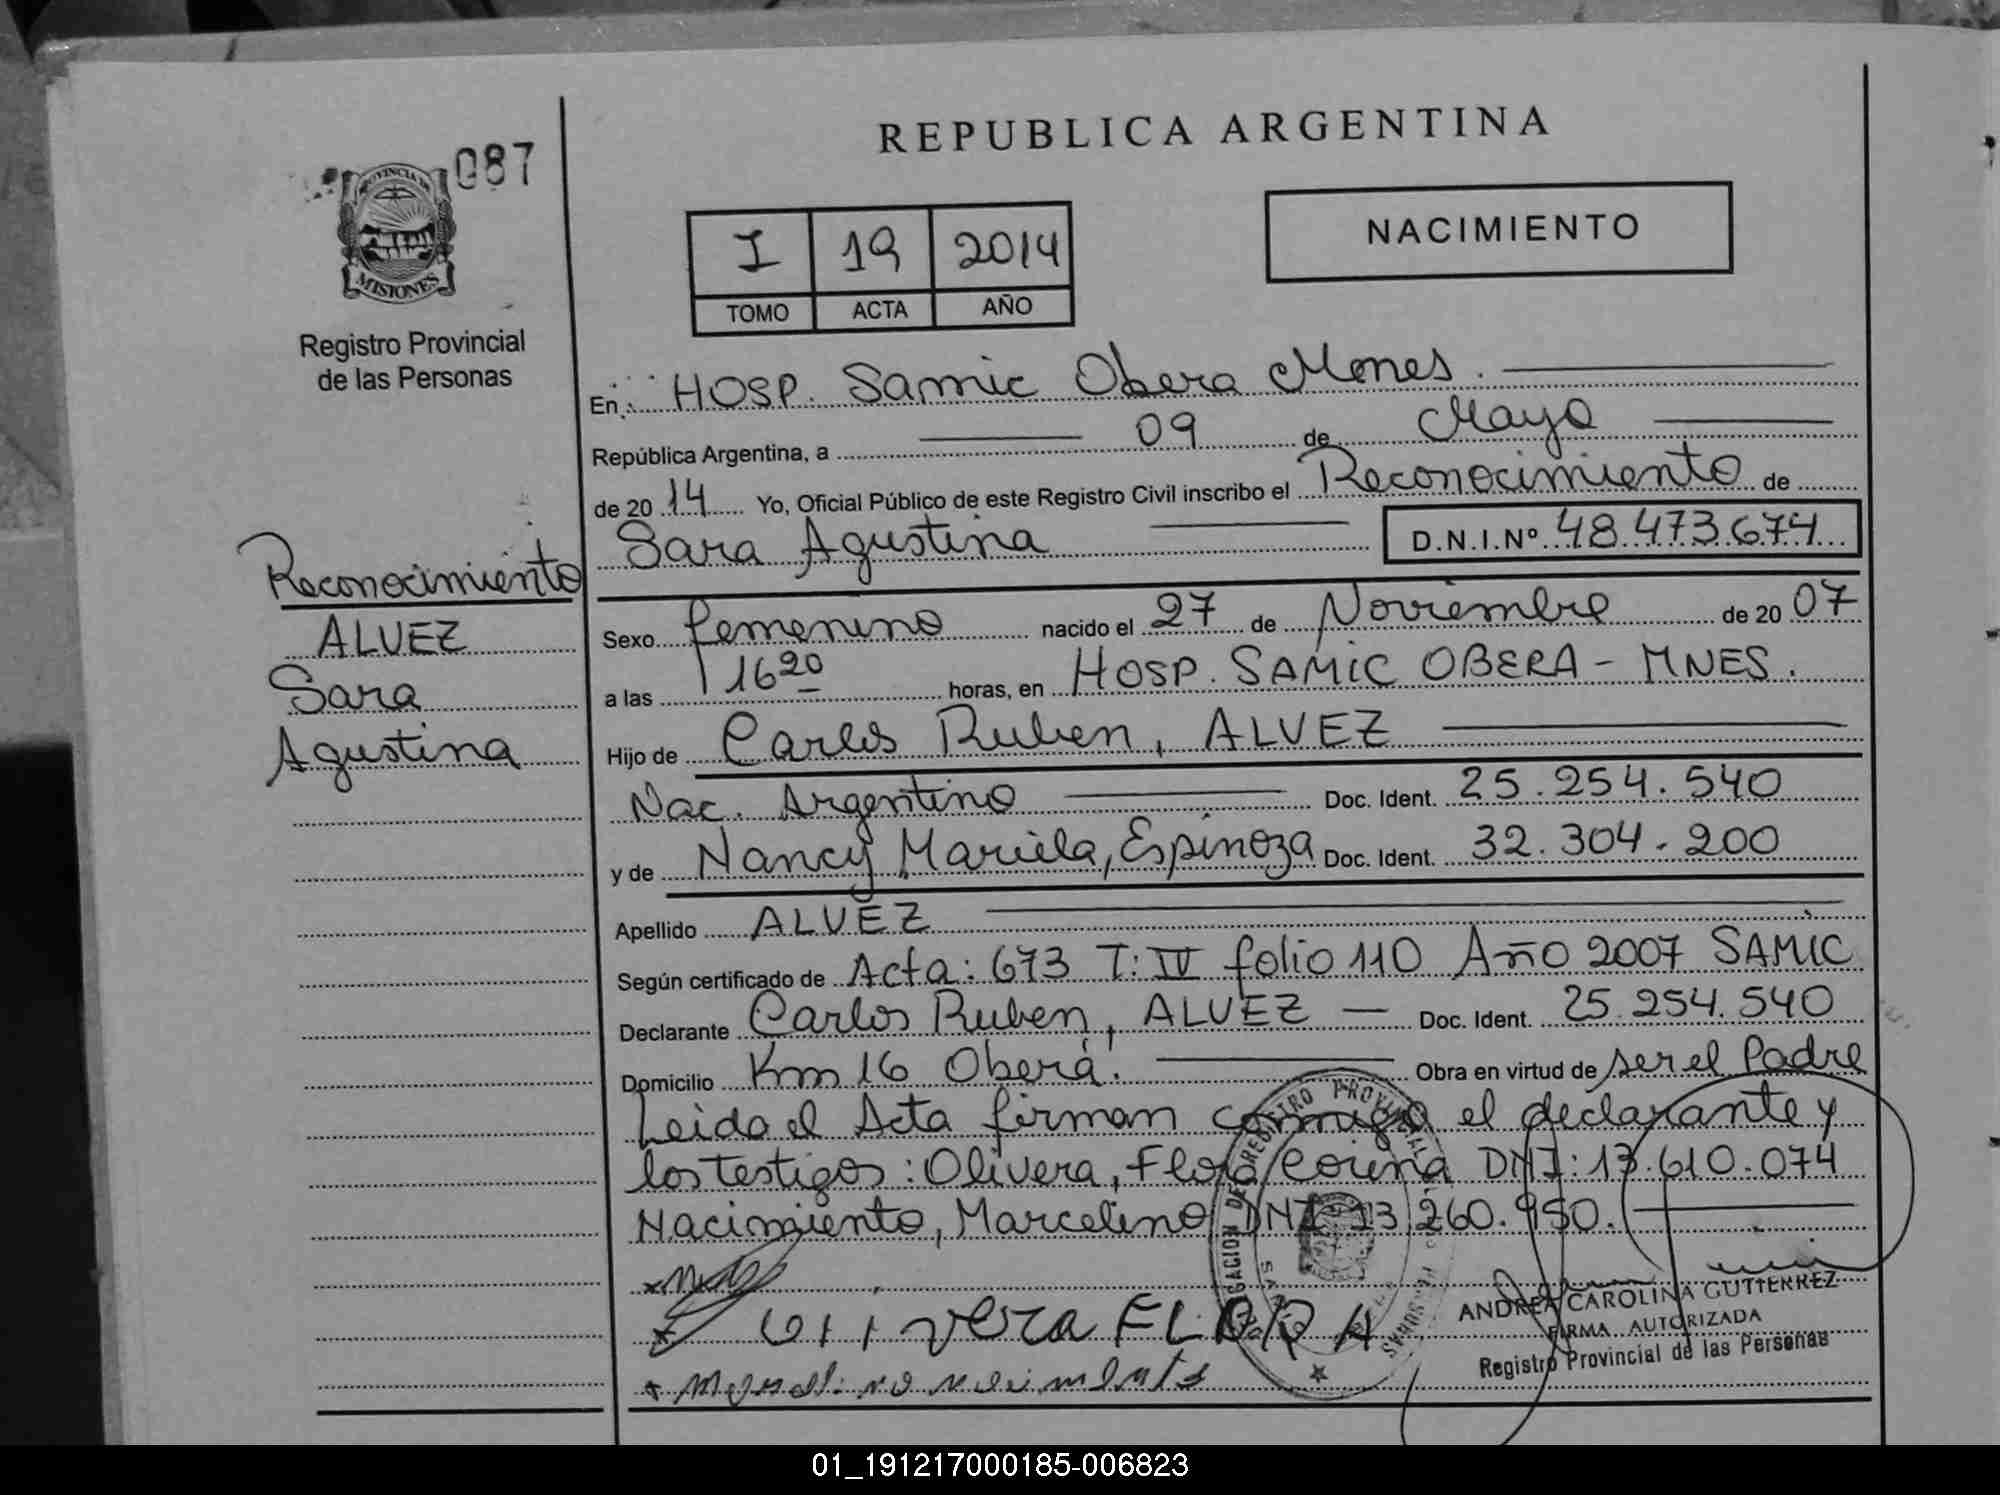 087
PROVINCIA DE
MISIONES
Registro Provincial
de las Personas
REPUBLICA ARGENTINA
I 19 2014
TOMO ACTA AÑO
NACIMIENTO
En HOSP. Samic Obera Mnes.
República Argentina, a 09 de Mayo
de 2014 Yo, Oficial Público de este Registro Civil inscribo el Reconocimiento de
Sara Agustina D.N.I.Nº 48.473.674
Reconocimiento
ALVEZ
Sara
Agustina
Sexo femenino nacido el 27 de Noviembre de 2007
a las 16 20 horas, en HOSP. SAMIC OBERA - MNES.
Hijo de Carlos Ruben, ALVEZ
Nac. Argentino Doc. Ident. 25.254.540
y de Nancy Mariela, Espinoza Doc. Ident. 32.304.200
Apellido ALVEZ
Según certificado de Acta: 673 T: IV folio 110 Año 2007 SAMIC
Declarante Carlos Ruben, ALVEZ Doc. Ident. 25.254.540
Domicilio Km 16 Oberá. Obra en virtud de ser el Padre
Leida el Acta firman conmigo el declarante y
los testigos: Olivera, Flora Corina DNI: 13.610.074
Nacimiento, Marcelino DNI 13.260.950.
Olivera FLORA
ANDREA CAROLINA GUTIERREZ
FIRMA AUTORIZADA
Registro Provincial de las Personas
01_191217000185-006823